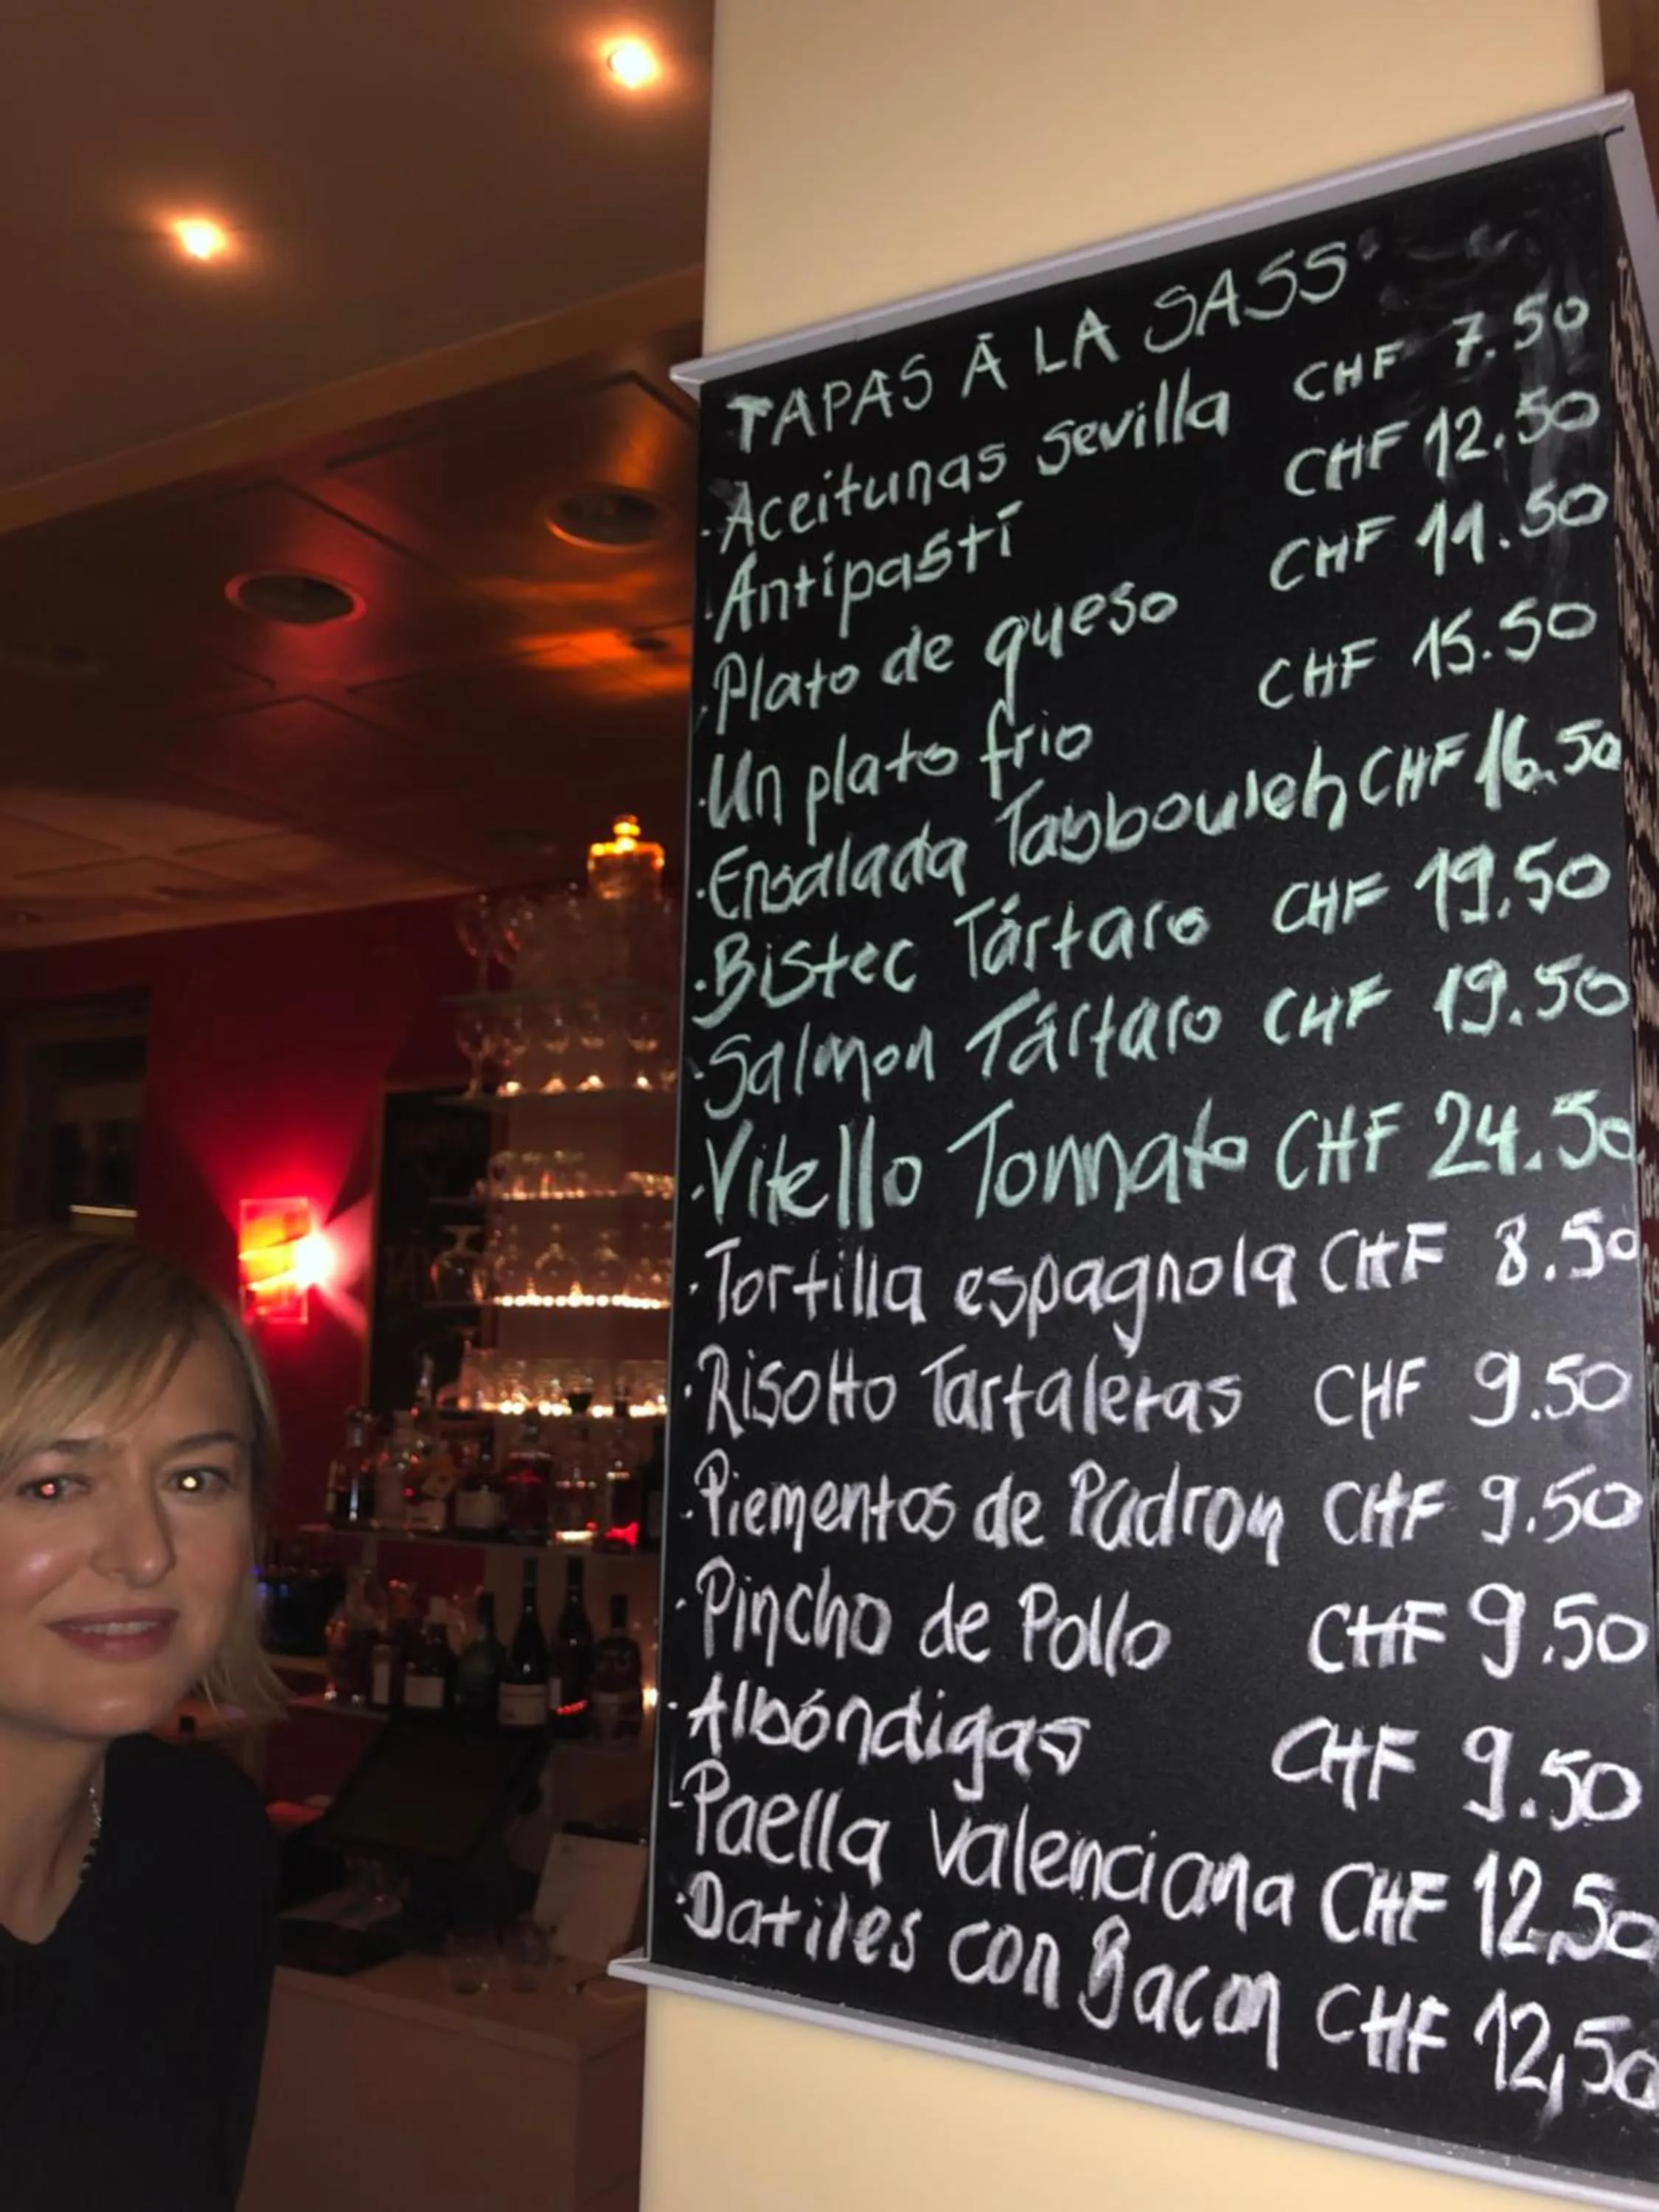 TAPAS À LA SASS
·Aceitunas Sevilla CHF 7.50
·Antipasti CHF 12.50
·Plato de queso CHF 11.50
·Un plato frio CHF 15.50
·Ensalada Taybbouleh CHF 16.50
·Bistec Tártaro CHF 19.50
·Salmon Tártaro CHF 19.50
·Vitello Tonnato CHF 24.50
·Tortilla espagnola CHF 8.50
·Risotto Tartaletas CHF 9.50
·Piementos de Padron CHF 9.50
·Pincho de Pollo CHF 9.50
·Albóndigas CHF 9.50
·Paella valenciana CHF 12,50
·Datiles con Bacon CHF 12,50